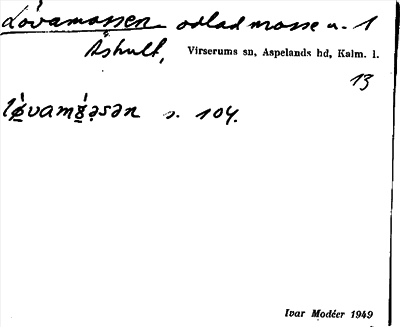 Lövamossen odlad mosse u. 1
Åshult, Virserums sn, Aspelands hd, Kalm. l.
13
s. 104.
Ivar Modéer 1949